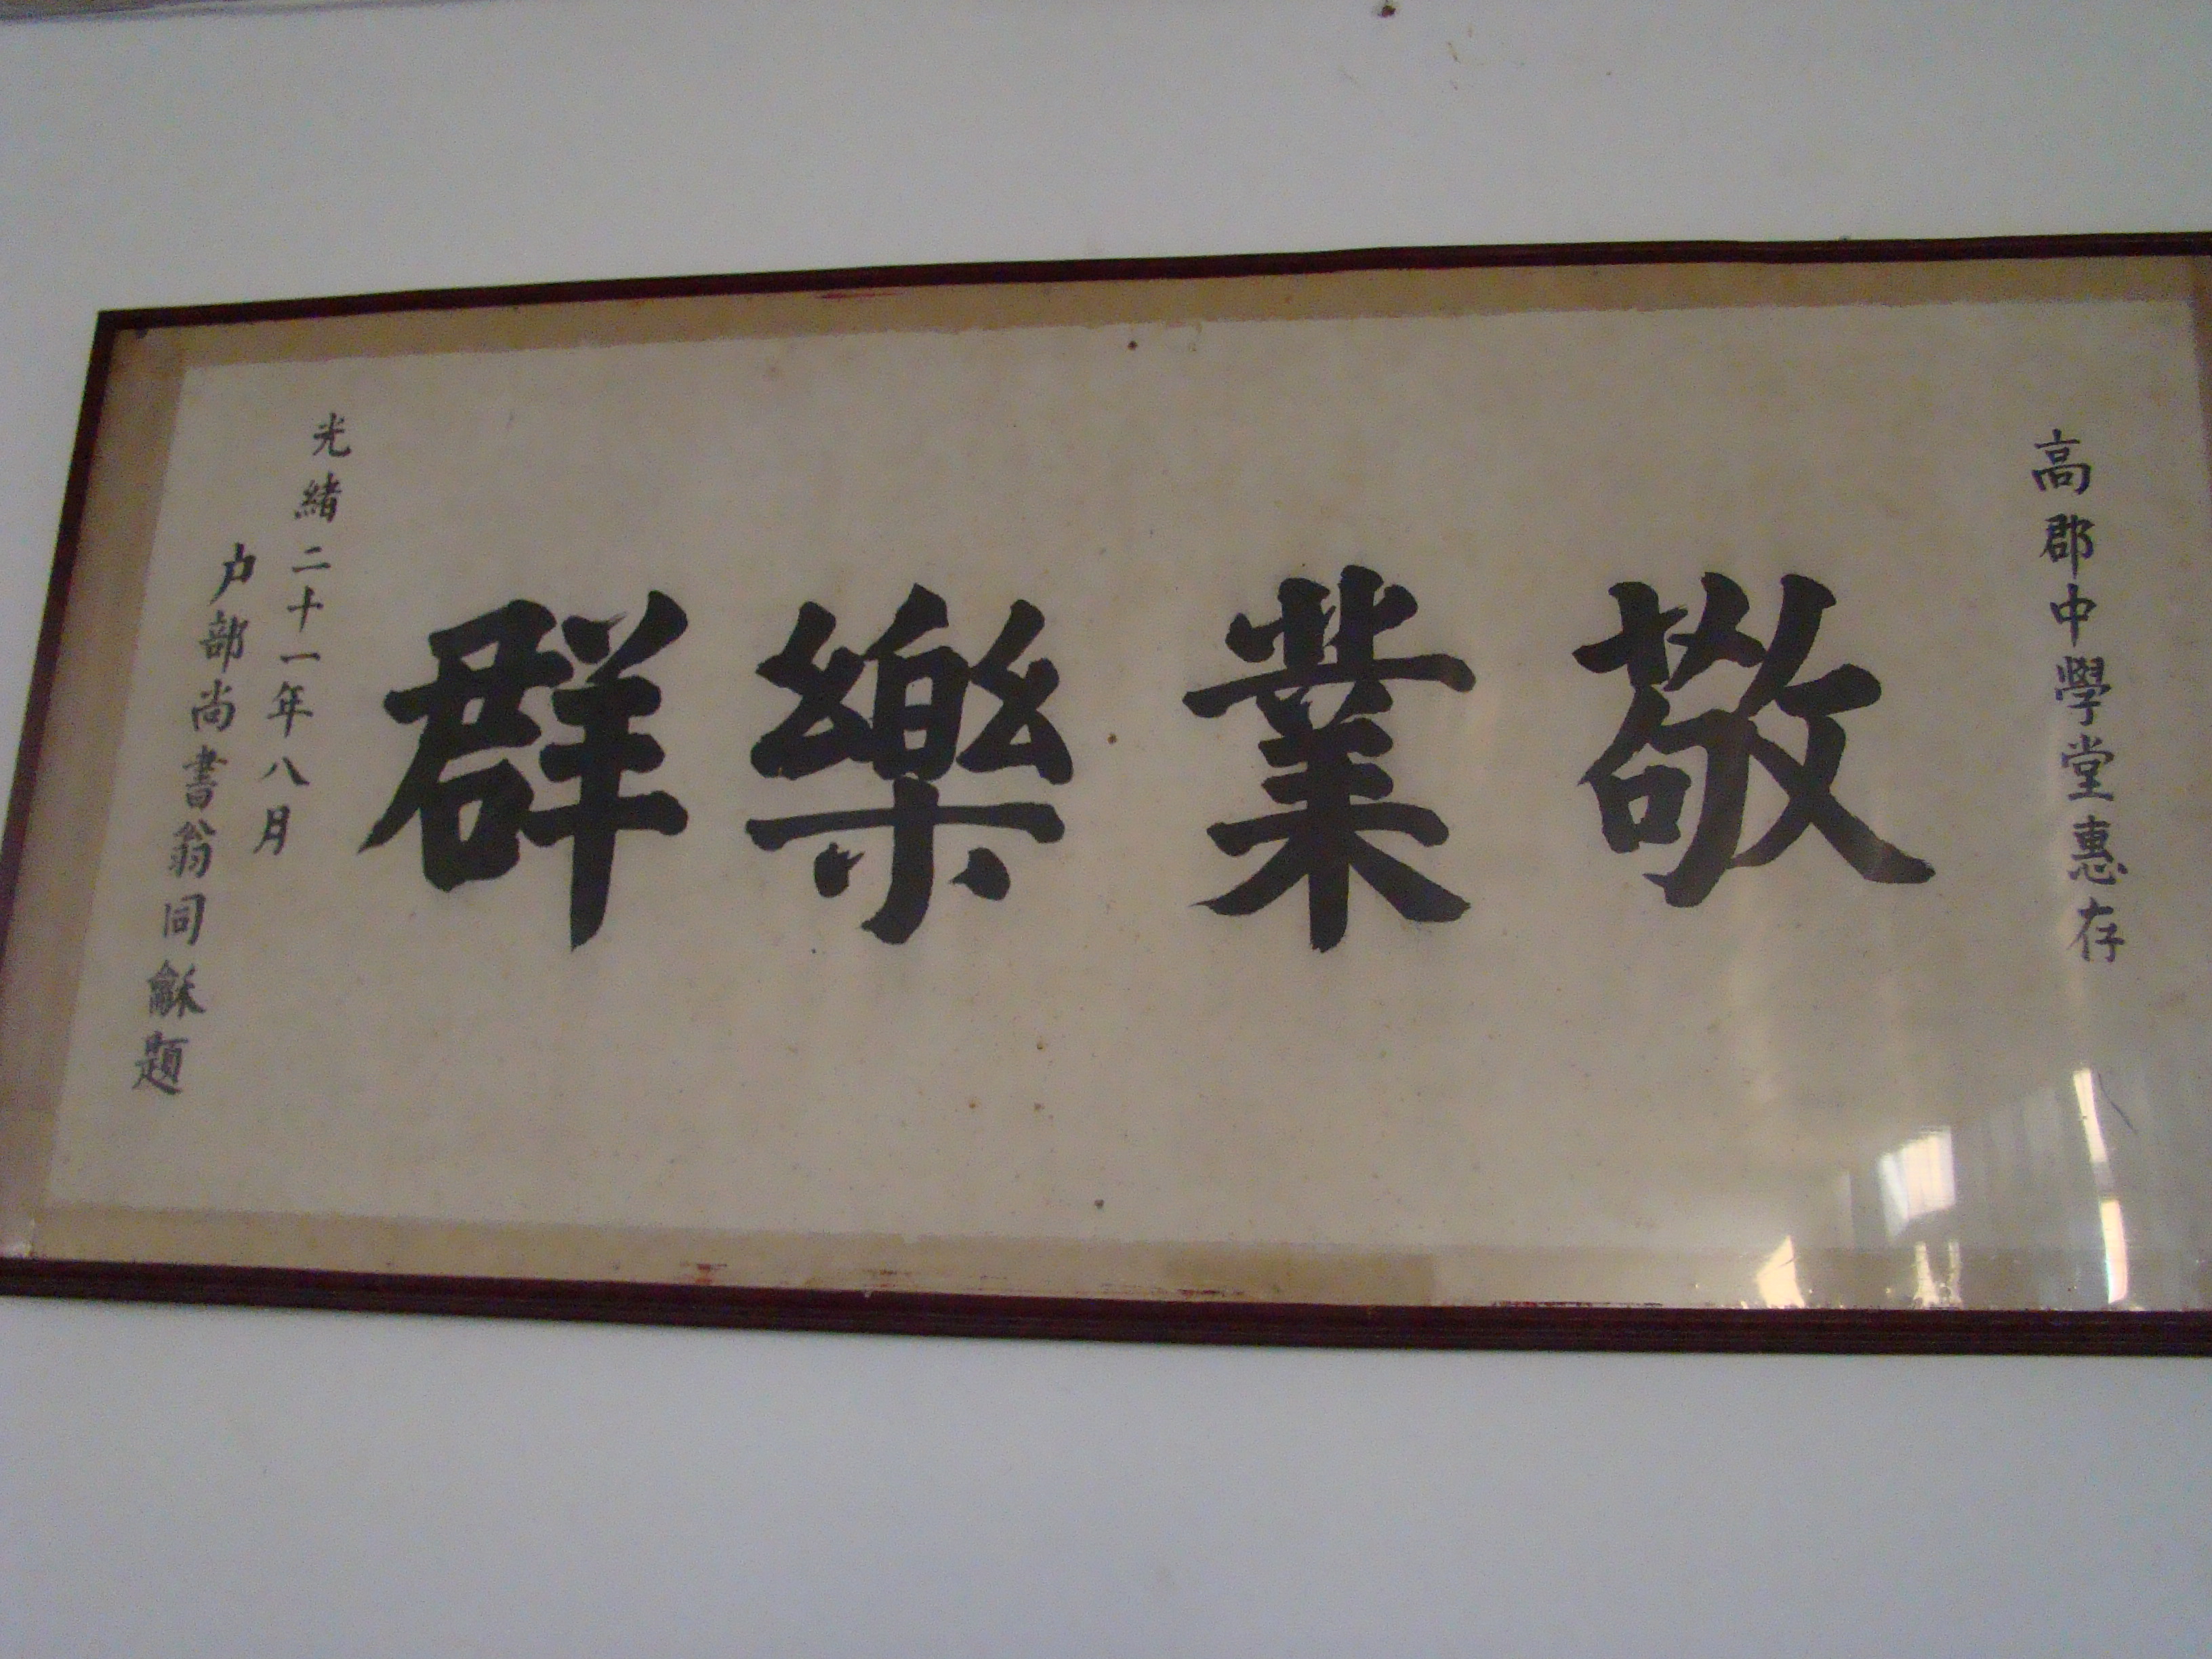 高郡中學堂惠存
敬業樂群
光緒二十一年八月
户部尚書翁同龢題